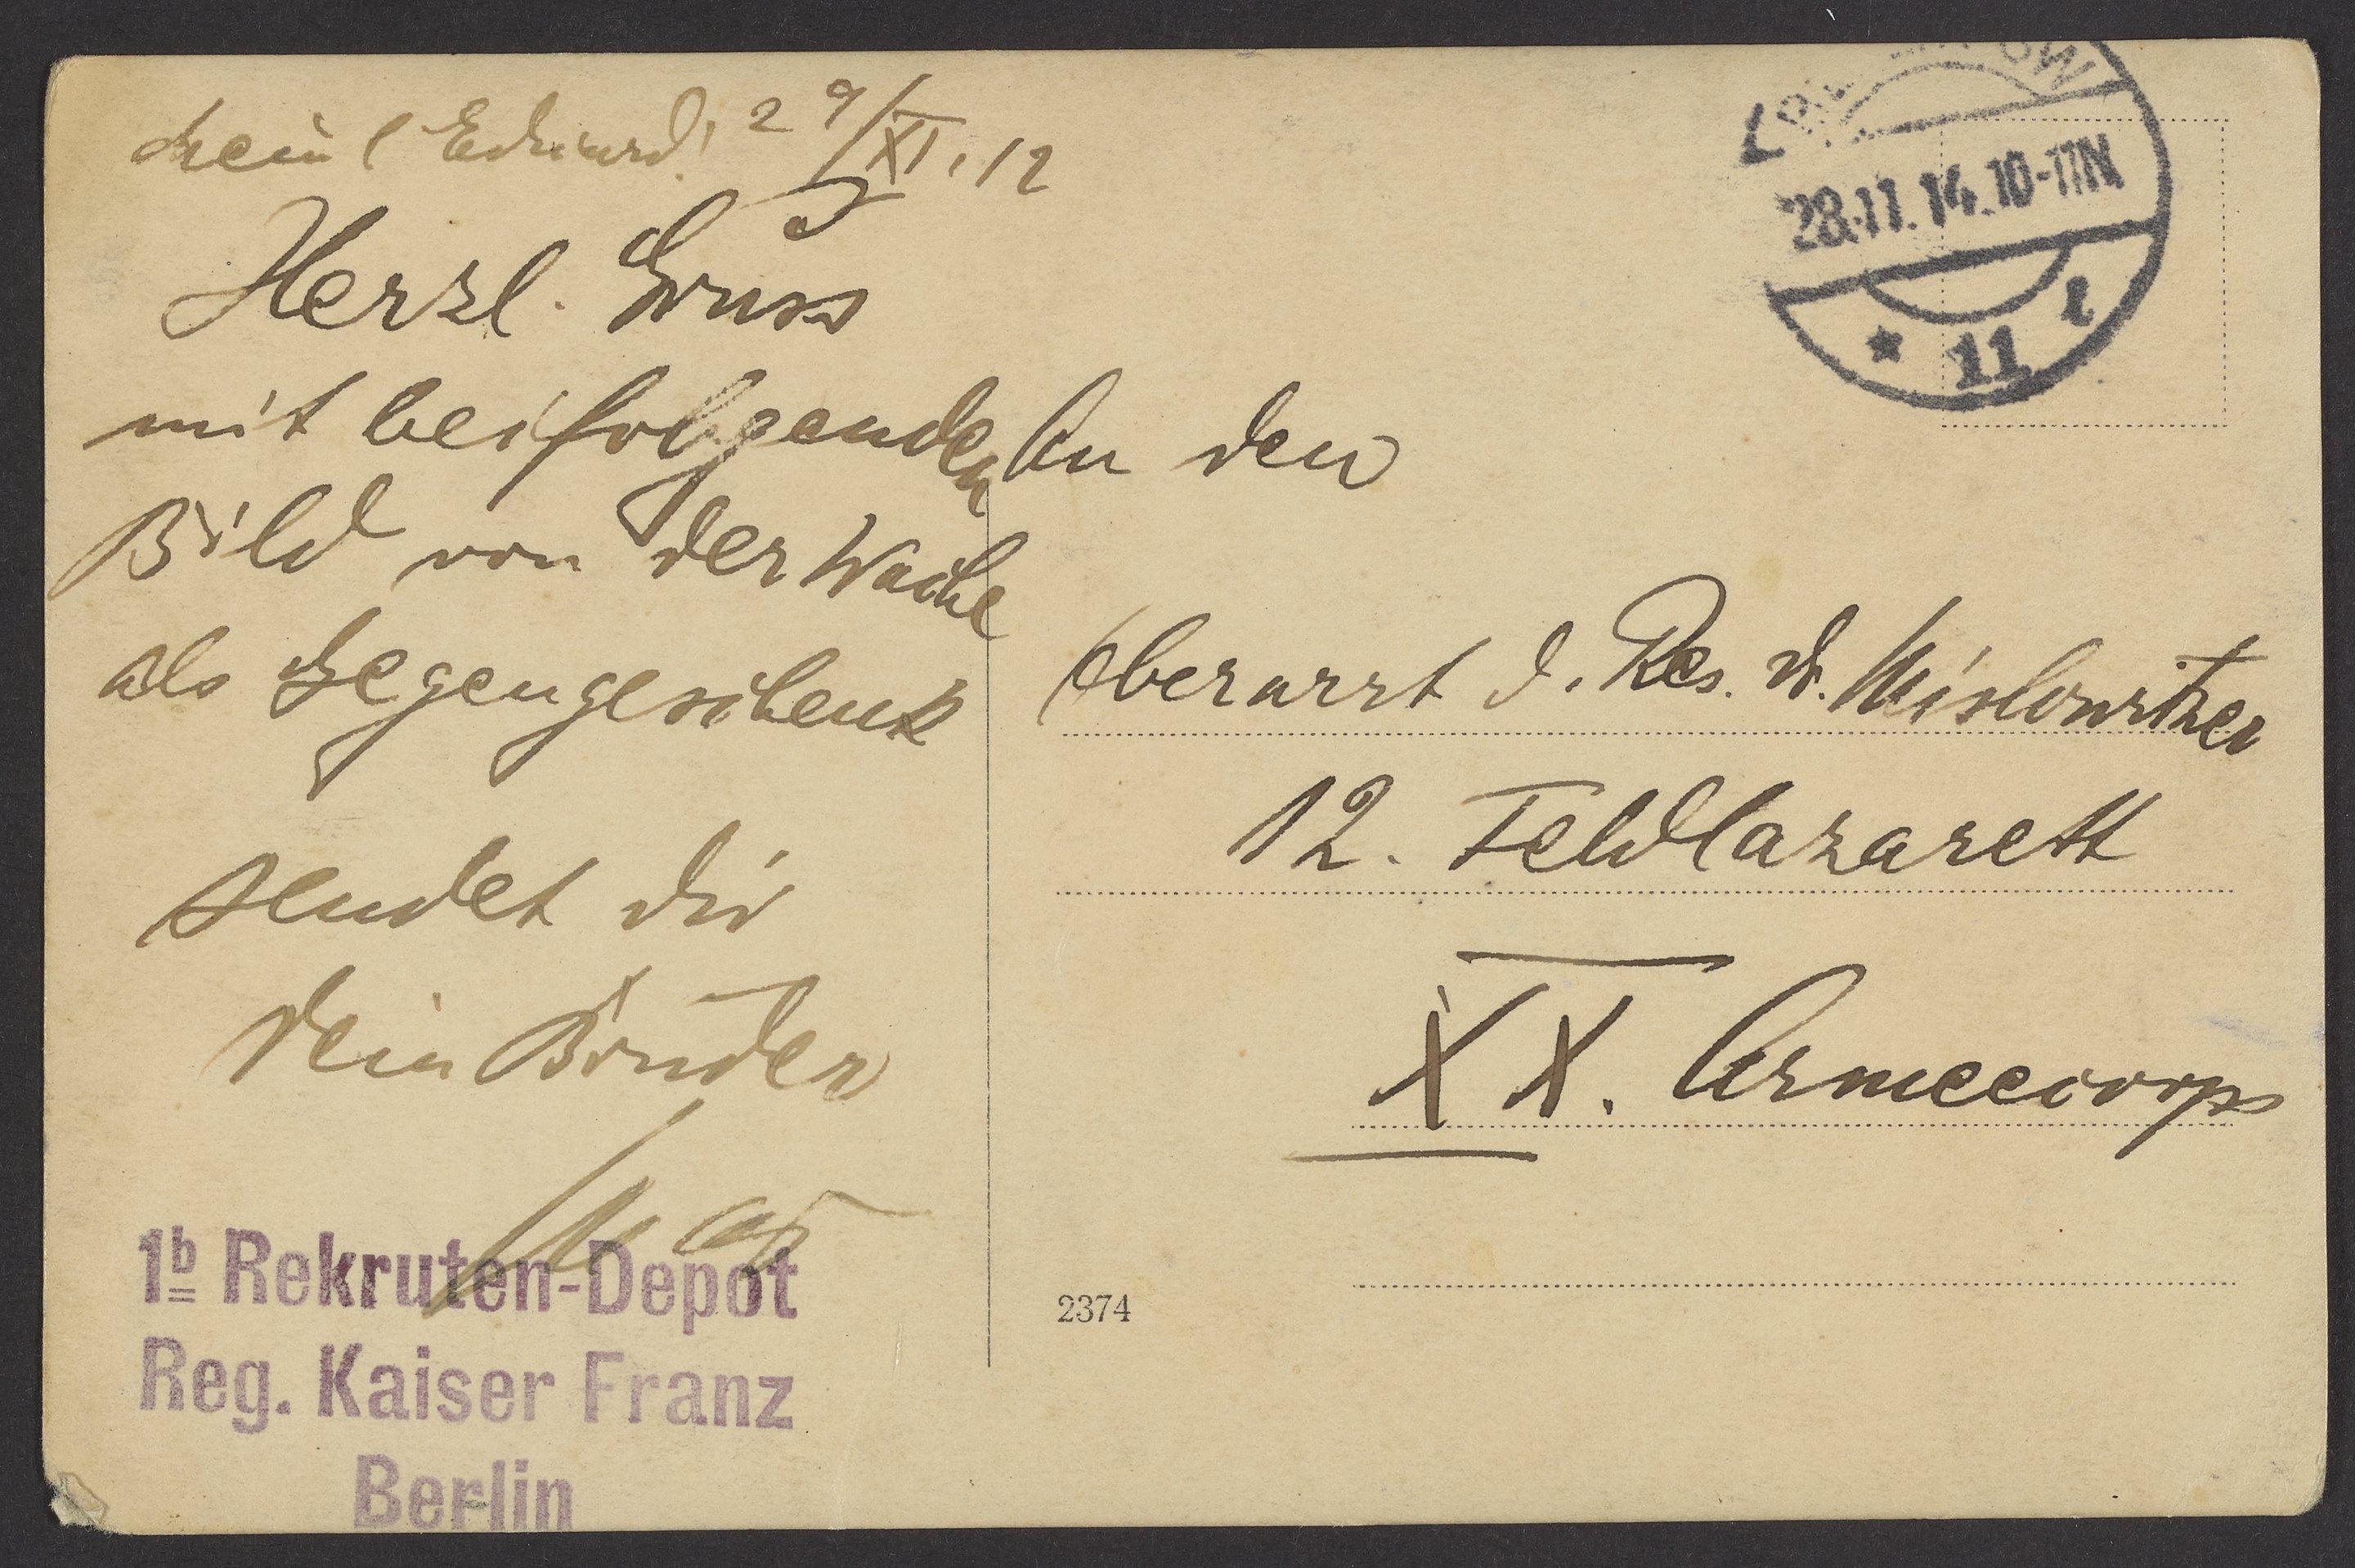 Mein l Eduard! 29/XI. 12
Herzl. Gruss
mit beifolgenden
Bild von der Wache
als Gegengeschenk
sendet dir
dein Bruder
Max
1b Rekruten-Depot
Reg. Kaiser Franz
Berlin
28.11.14.10-11N
* 11 l
An den
Oberarzt d. Res. Dr. Mislowitzer
12. Feldlazarett
XX. Armeecorps
2374